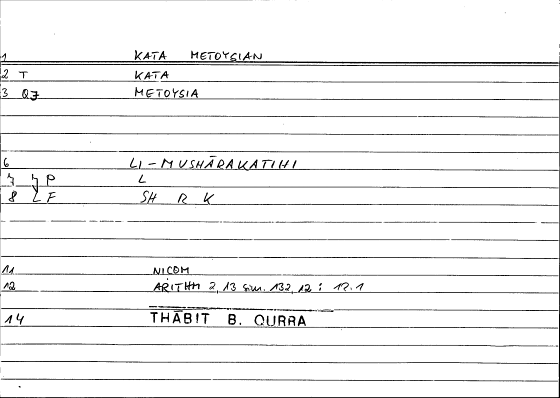 1 KATA METOYSIAN
2 T KATA
3 QJ METOYSIA
6 LI-MUSHĀRAKATIHI
7 P L
8 F SH R K
11 NICOM
12 ARITHM 2, 13 132, 12 : 1
14 THĀBIT B. QURRA